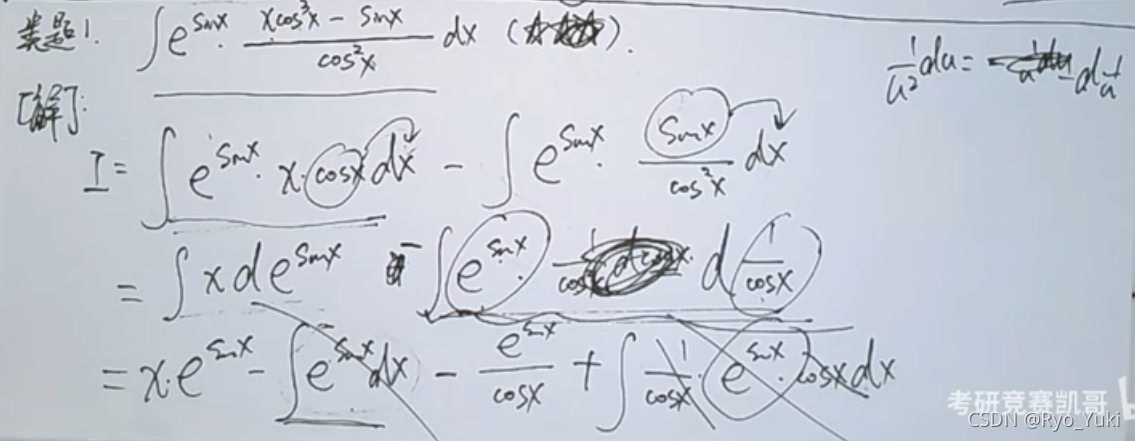 类题1. ∫e^{sinx}·\frac{xcos³x - sinx}{cos²x}dx (☆☆☆).
\frac{1}{u²}du = -d\frac{1}{u}
[解]:
I = ∫e^{sinx}·x·cosx dx - ∫e^{sinx}·\frac{sinx}{cos²x}dx
= ∫xde^{sinx} - ∫e^{sinx}·d\frac{1}{cosx}
= x·e^{sinx} - ∫e^{sinx}dx - \frac{e^{sinx}}{cosx} + ∫\frac{1}{cosx}·e^{sinx}·cosxdx
考研竞赛凯哥
CSDN @Ryo_Yuki